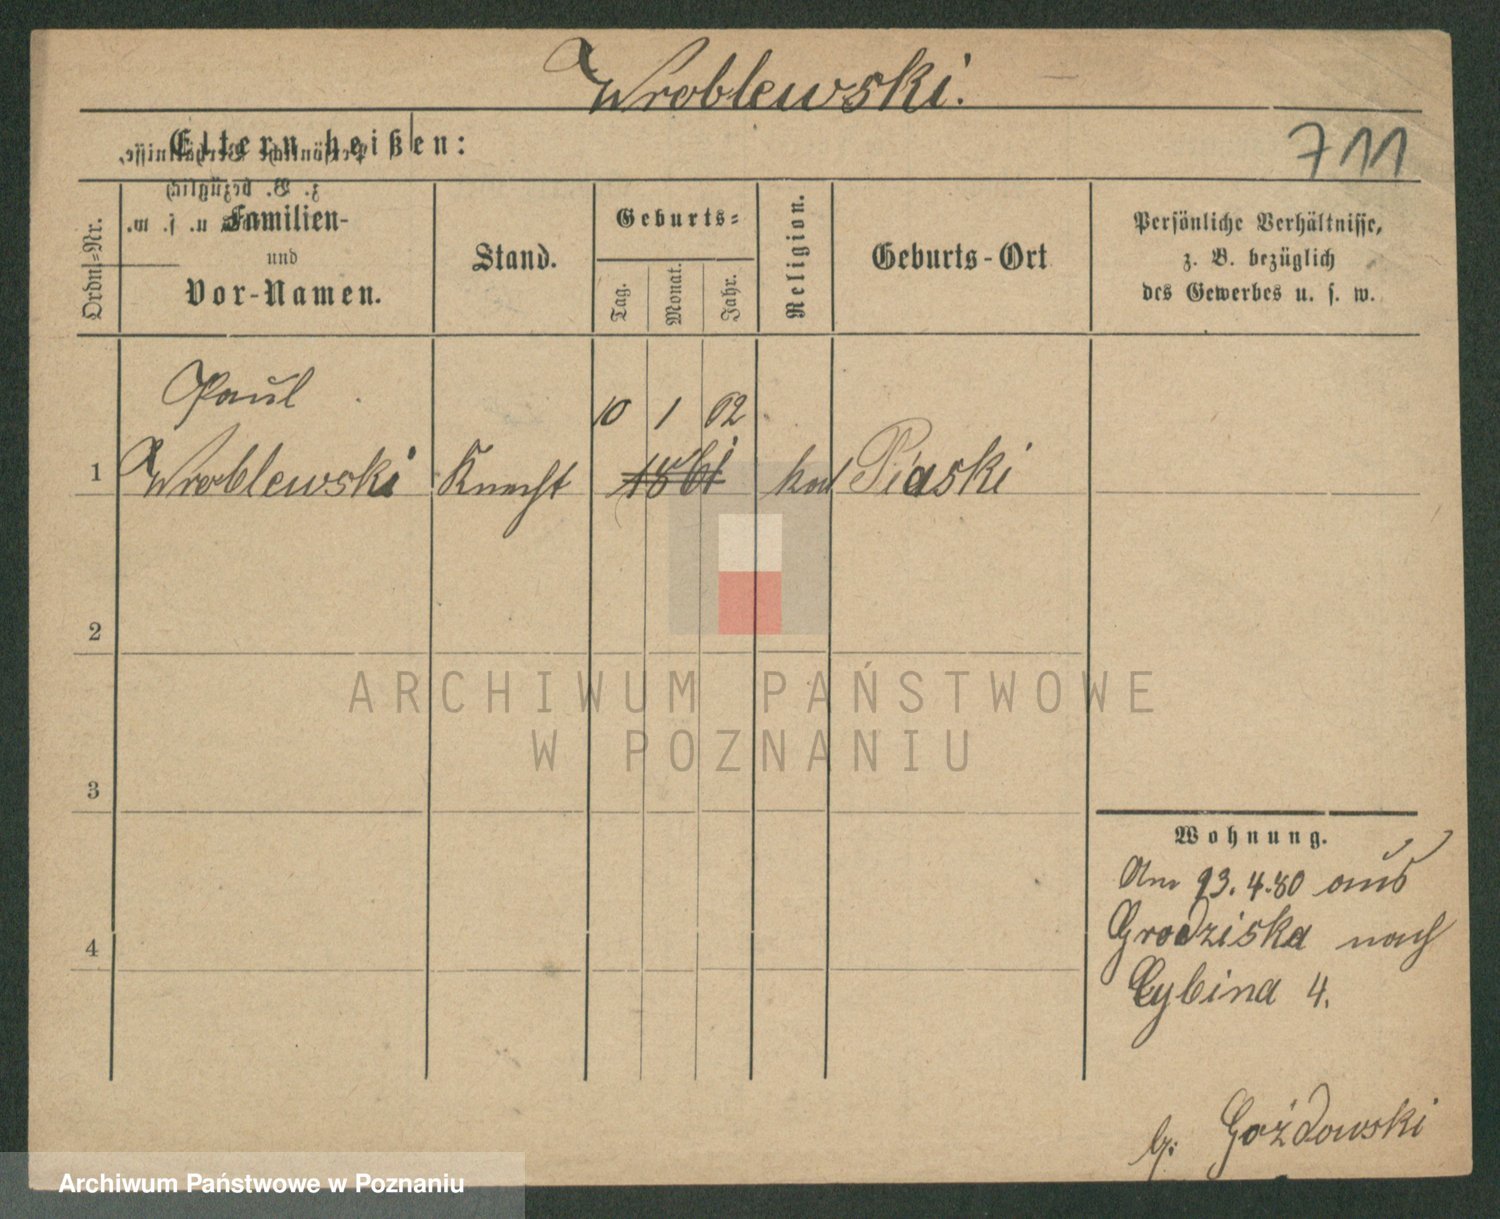 Wroblewski.
Eltern heißen:
711
Ordn.-Nr.
Familien-
und
Vor-Namen.
Stand.
Geburts-
Tag.
Monat.
Jahr.
Religion.
Geburts-Ort
Persönliche Verhältnisse,
z. B. bezüglich
des Gewerbes u. s. w.
Paul
10 1 62
1 Wroblewski Knecht 1861 kat Piaski
2
3
4
Wohnung.
Am 23.4.80 aus
Grodziska nach
Cybina 4.
b: Goździowski
ARCHIWUM PAŃSTWOWE
W POZNANIU
Archiwum Państwowe w Poznaniu